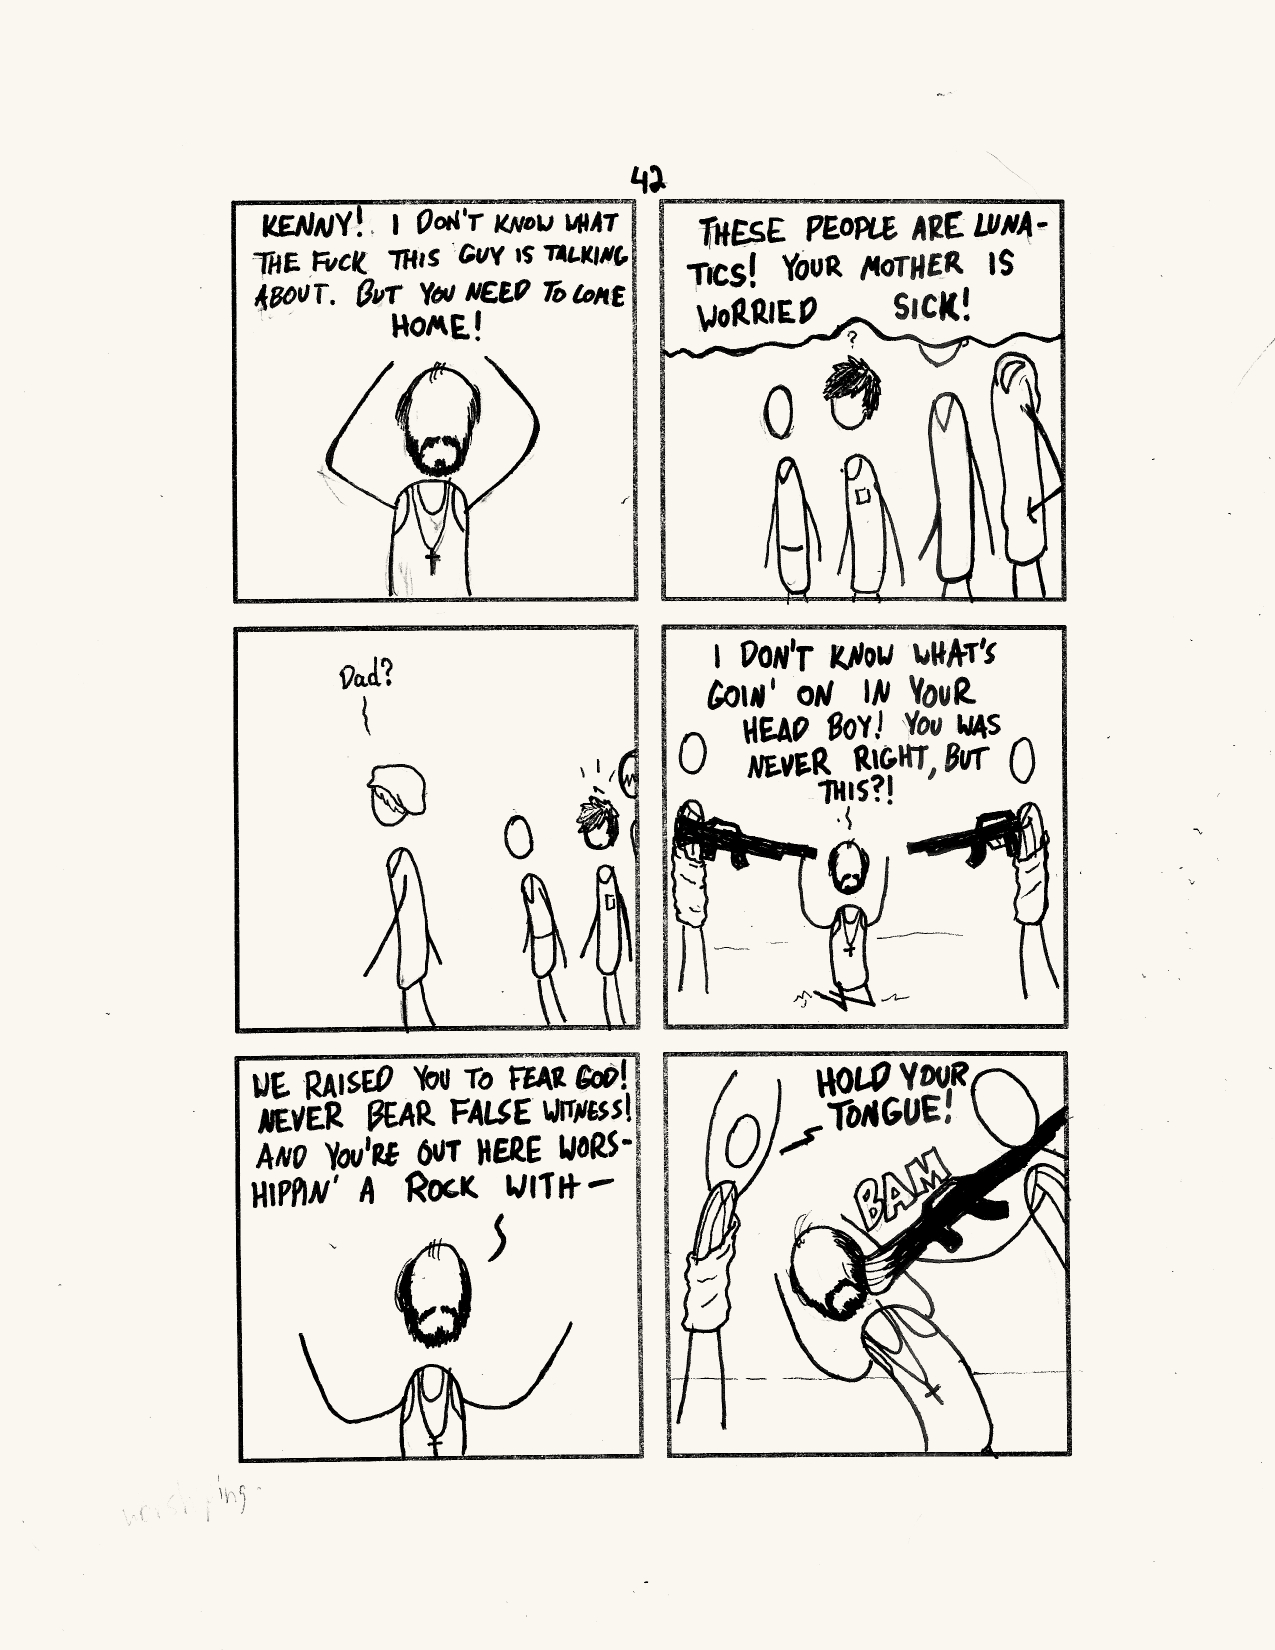 42
KENNY! I DON'T KNOW WHAT
THE FUCK THIS GUY IS TALKING
ABOUT. BUT YOU NEED TO COME
HOME!
THESE PEOPLE ARE LUNA-
TICS! YOUR MOTHER IS
WORRIED SICK!
?
Dad?
I DON'T KNOW WHAT'S
GOIN' ON IN YOUR
HEAD BOY! YOU WAS
NEVER RIGHT, BUT
THIS?!
WE RAISED YOU TO FEAR GOD!
NEVER BEAR FALSE WITNESS!
AND YOU'RE OUT HERE WORS-
HIPPIN' A ROCK WITH—
HOLD YOUR
TONGUE!
BAM
worshiping